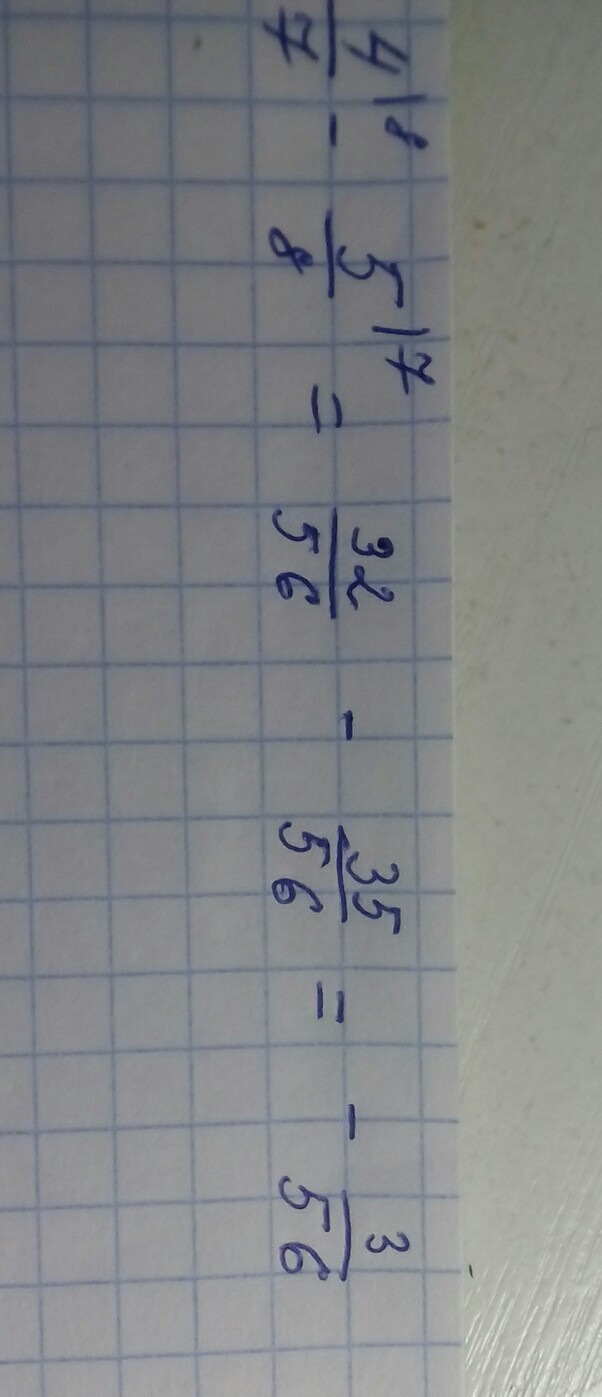 4/7 |8 - 5/8 |7 = 32/56 - 35/56 = - 3/56